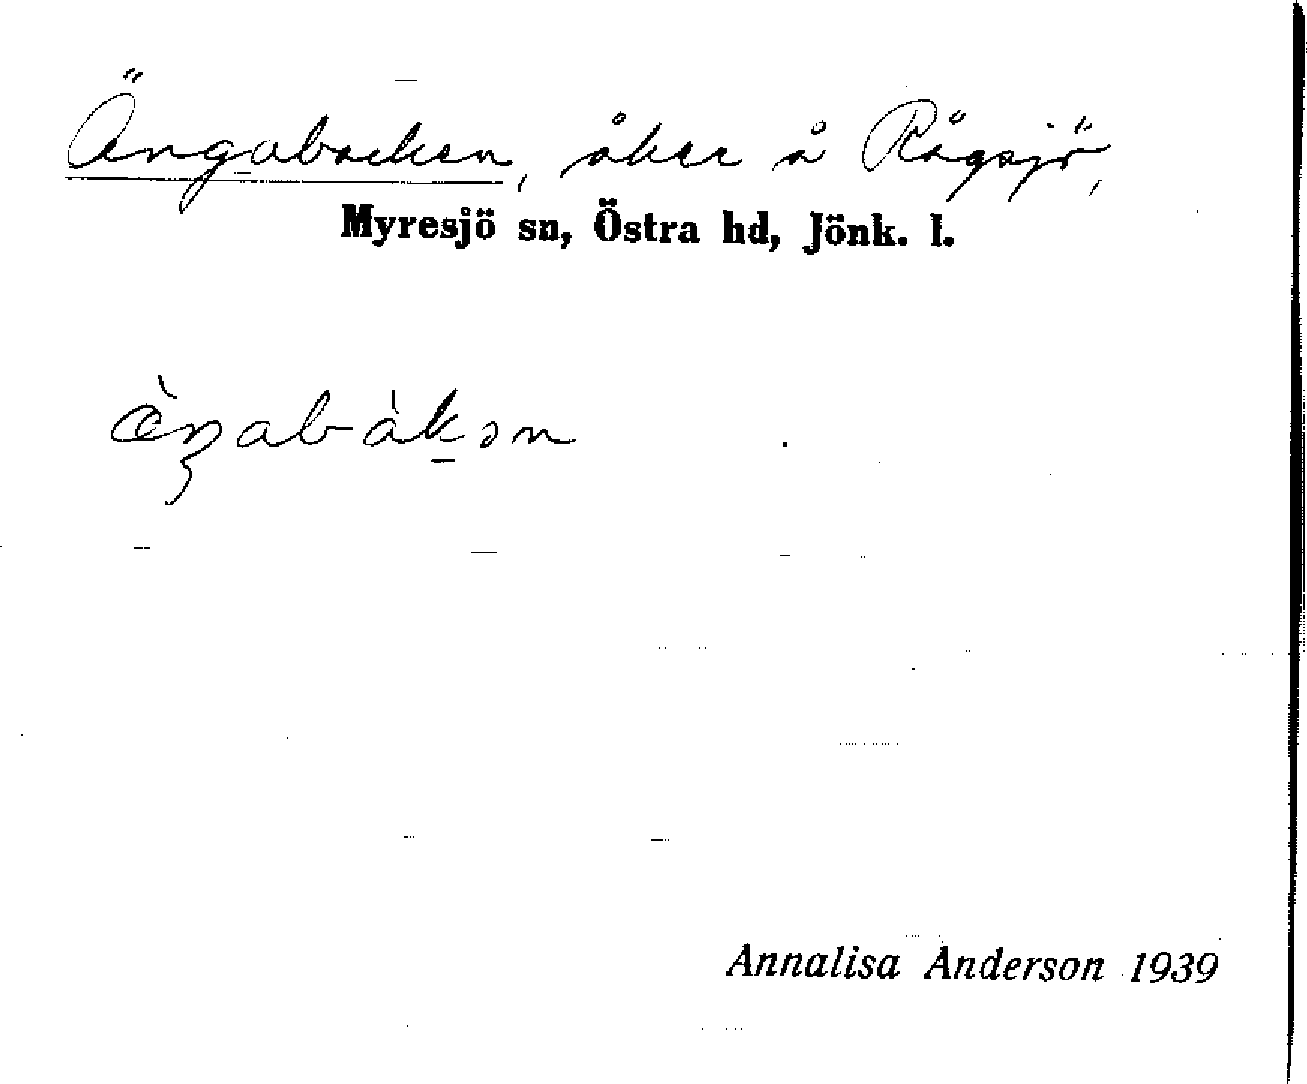 Ängabacken, åker å Rågsjö,
Myresjö sn, Östra hd, Jönk. l.
æ̀ŋabàkən
Annalisa Anderson 1939